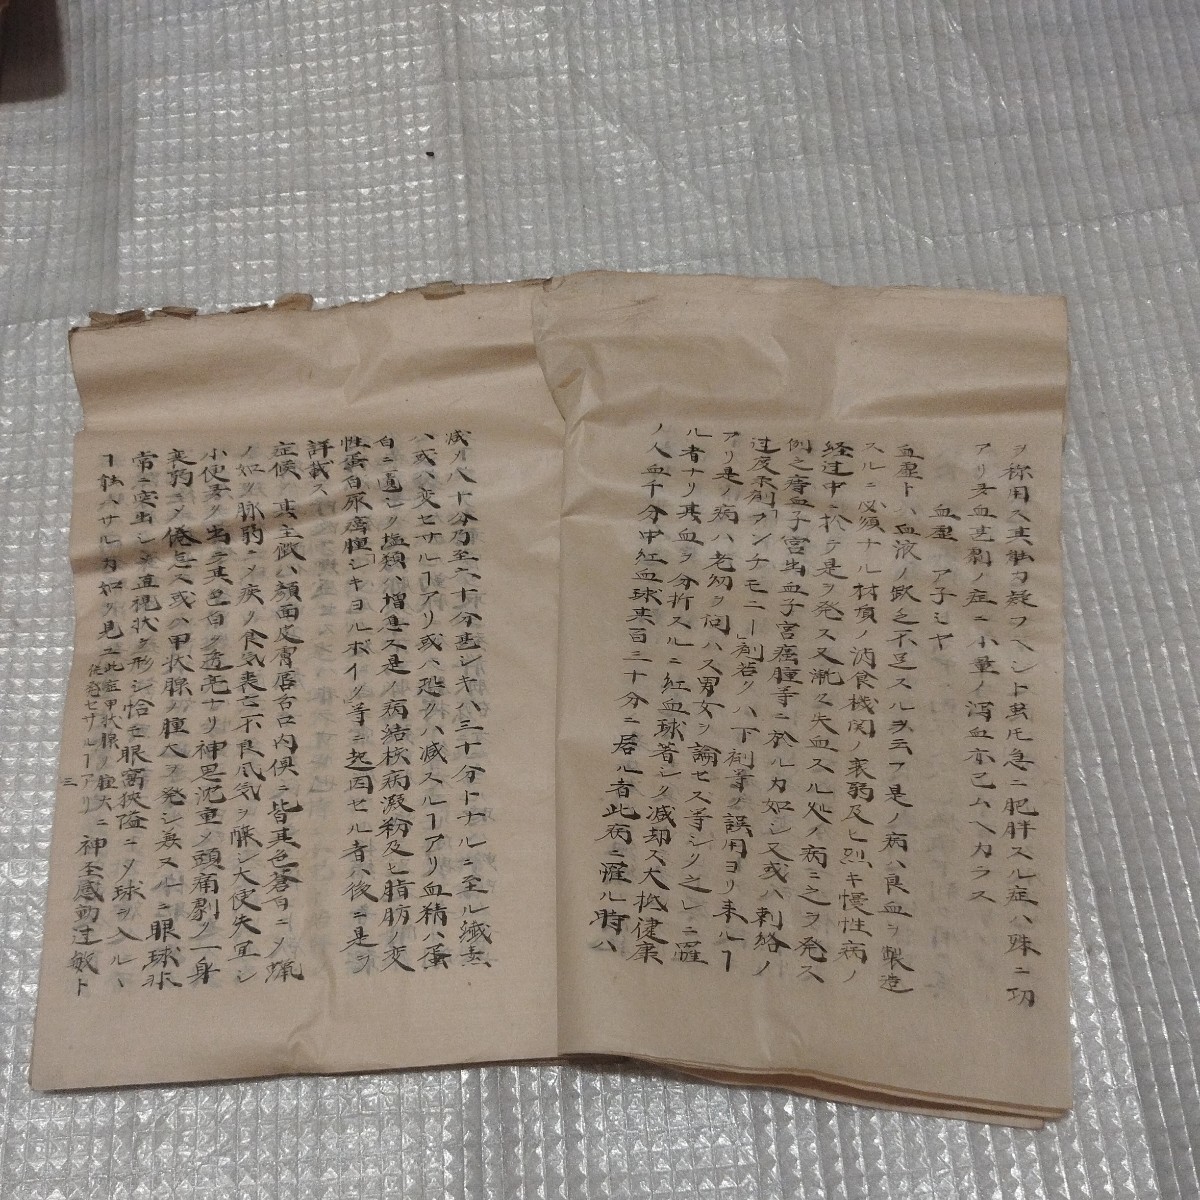 ヲ称用ス其軀ヲ疑フヘシト虽𪜈急ニ肥胖スル症ハ殊ニ功
アリ多血甚劇ノ症ニ小量ノ瀉血亦已ムヘカラス
血虚 ア子ミヤ
血虚トハ血液ノ欽乏不足スルヲ云フ是ノ病ハ良血ヲ製造
スルニ必須ナル材質ノ消食機関ノ衰弱及ヒ烈キ慢性病ノ
経过中ニ於テ是ヲ発ス又漸々失血スル処ノ病ニ之ヲ発ス
例之痔血子宮出血子宮癌腫等ニ於ルカ如シ又或ハ刺絡ノ
过度衆剤ヲンチモニー」剤若クハ下剤等ノ誤用ヨリ来ルヿ
アリ是ノ病ハ老幼ヲ问ハス男女ヲ論セス等シク之レニ罹
ル者ナリ其血ヲ分析スルニ紅血球著シク減却ス大抵健康
ノ人血千分中紅血球百三十分ニ居ル者此病ニ罹ル時ハ
減ノ八十分乃至六十分甚シキハ三十分トナルニ至ル繊素
ハ或ハ変セサルヿアリ或ハ恐クハ減スルヿアリ血精ハ蛋
白ニ乏シク塩類ハ増息ス是ノ病結核病澱粉及ヒ脂肪ノ変
性蛋白尿癌腫」シキヨルボイク」等ニ起因セル者ハ後ニ是ヲ
詳載ス
症候 其主徴ハ顔面皮膚唇舌口内倶ニ皆其色蒼白ニメ蝋
ノ如ク脉弱ニメ疾ク食気衰亡不良瓦気ヲ醸シ大便失宜シ
小便多ク出テ其色白ク透亮ナリ神思沈重メ頭痛劇ク一身
衰弱ニメ倦怠ス或ハ甲状腺ノ腫大ヲ発シ兼スルニ眼球
常ニ突出シ直視状ヲ形シ恰モ眼窩狭隘ニメ球ヲ入ルヽ
ヿ能ハサルカ如キヲ見ル此症甲状腺ノ腫大ニ
従発セサルヿアリ 神至感動过敏ト
三